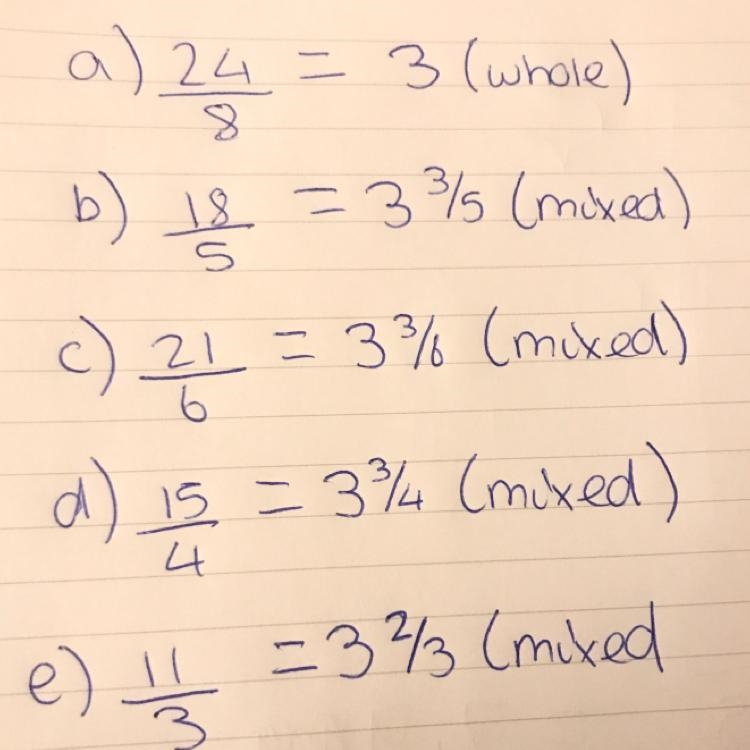 a) 24/8 = 3 (whole)
b) 18/5 = 3 3/5 (mixed)
c) 21/6 = 3 3/6 (mixed)
d) 15/4 = 3 3/4 (mixed)
e) 11/3 = 3 2/3 (mixed